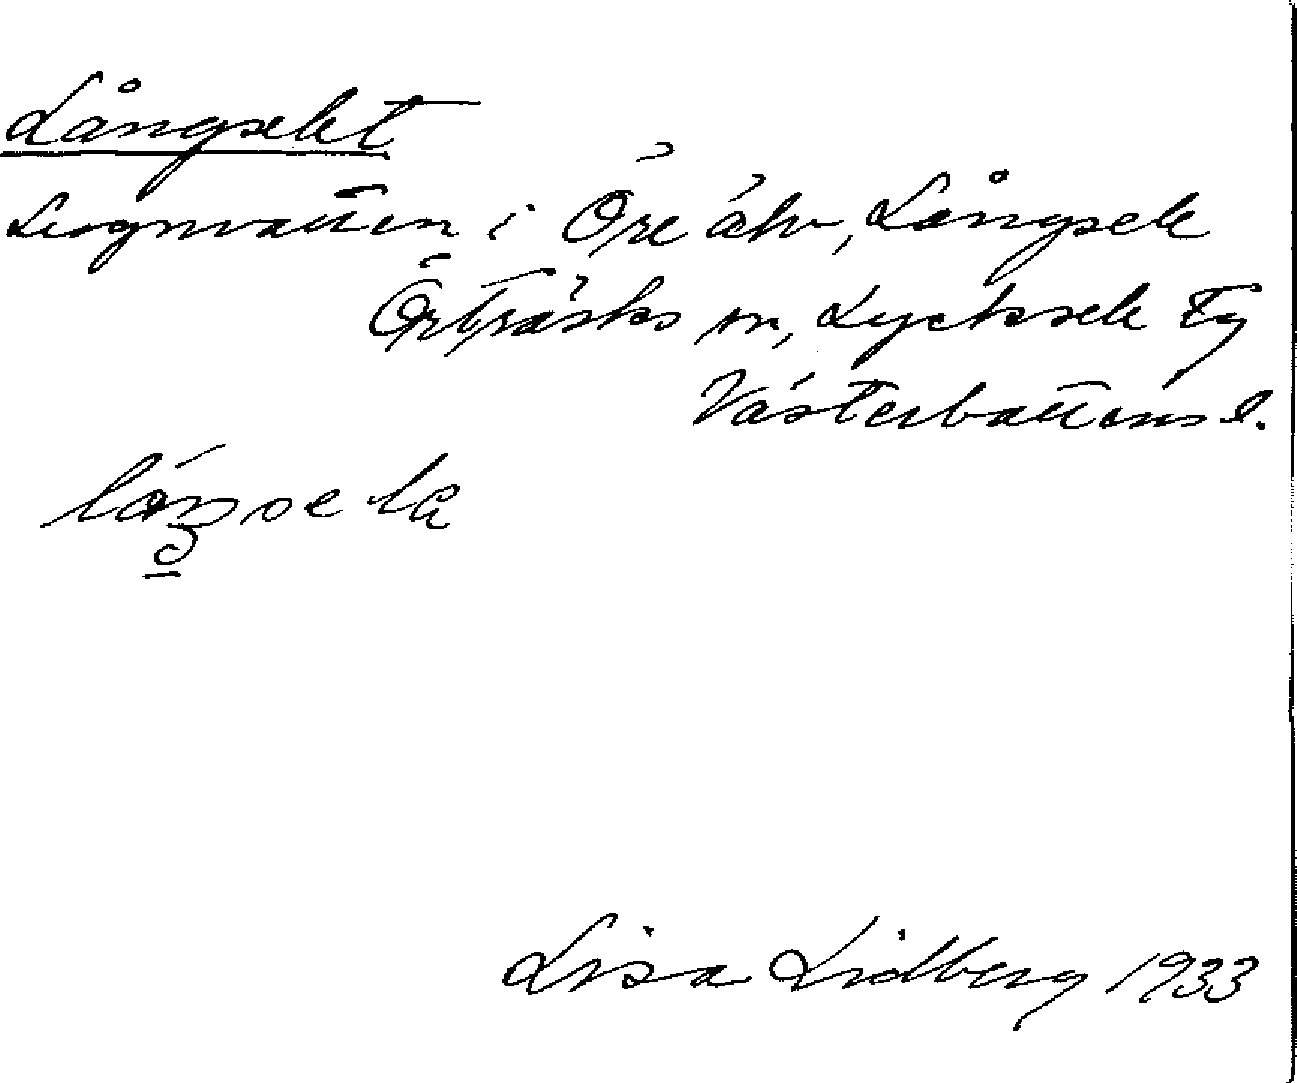 Långselet
Lugnvatten i Öre älv, Långsele
Örträsks sn, Lycksele tg
Västerbottens l.
Lisa Lidberg 1933